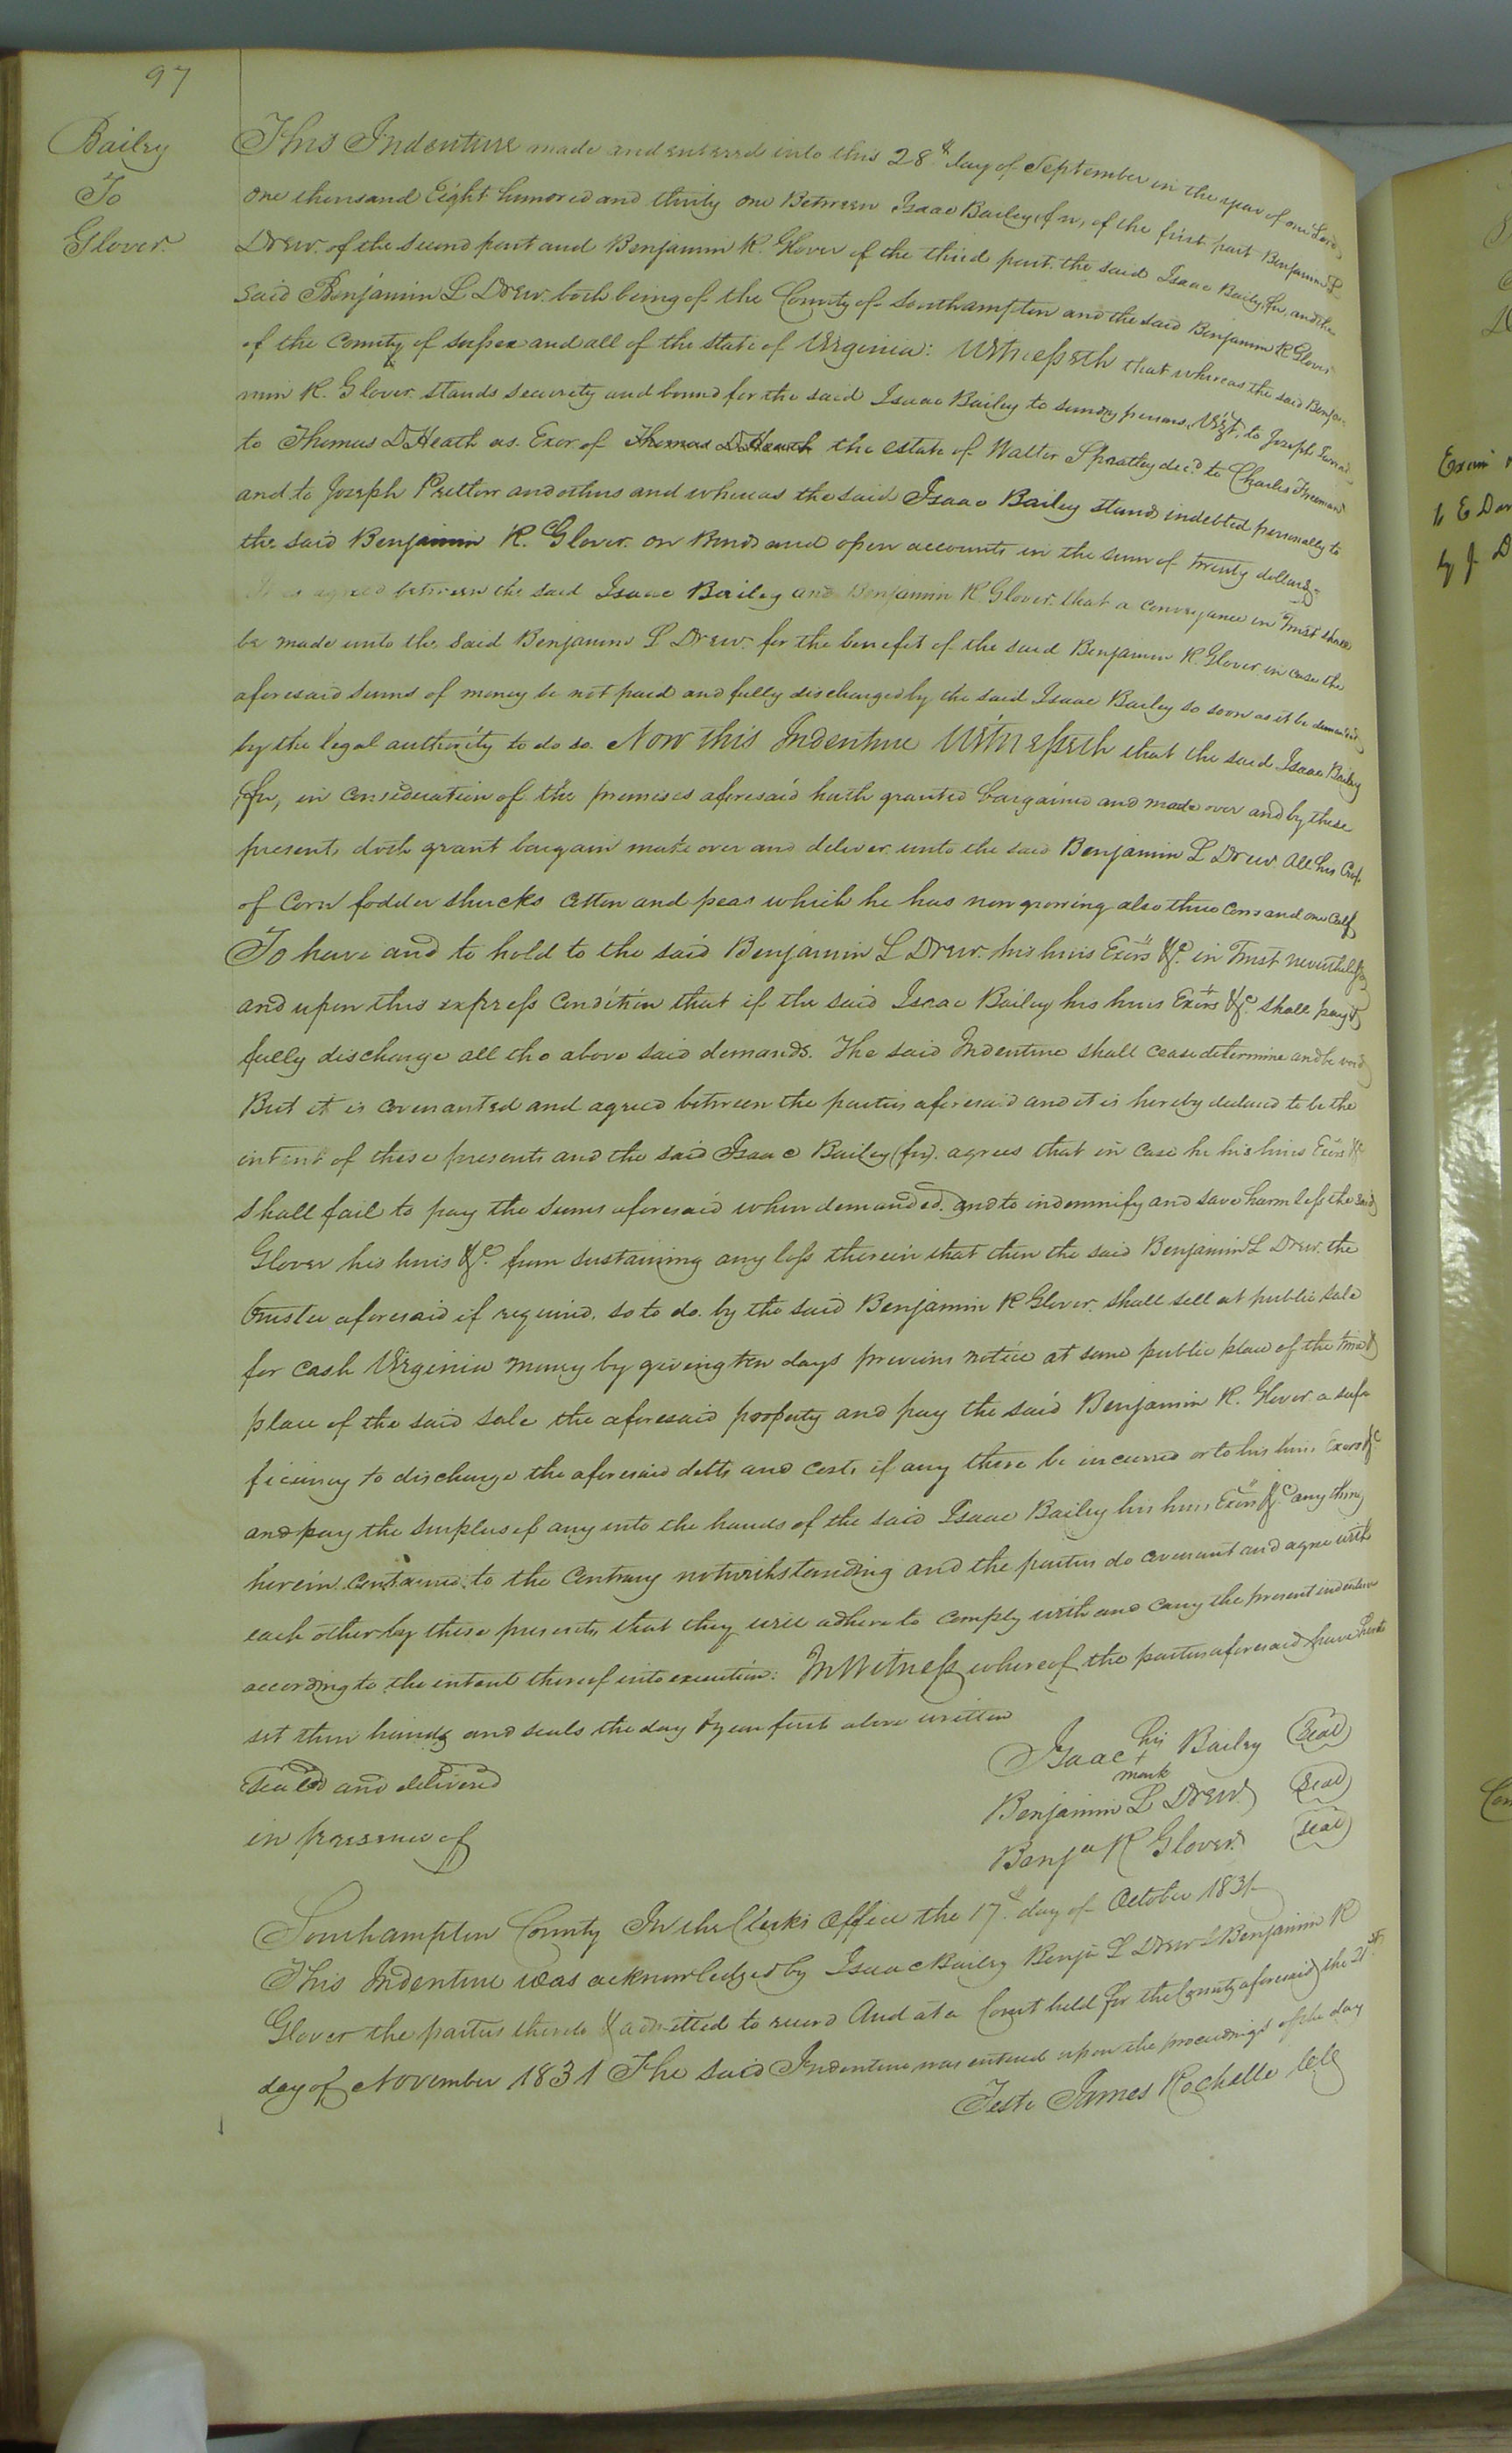 97
Bailey
To
Glover.
This Indenture made and entered into this 28th day of September in the year of our Lord
one thousand Eight hundred and thirty one Between Isaac Bailey, of the first part Benjamin L
Drew. of the second part and Benjamin K. Glover of the third part. the said Isaac Baily, and the
said Benjamin L Drew both being of the County of Southampton and the said Benjamin K Glover
of the County of Sussex and all of the state of Virginia: Witnesseth that whereas the said Benja-
min K. Glover stands security and bound for the said Isaac Bailey to sundry persons, Vizt, to Joseph
to Thomas D Heath as. Exor of Thomas D Heath the estate of Walter Spratley decd. to Charles Freeman
and to Joseph Pretlow and others and whereas the said Isaac Bailey stands indebted personally to
the said Benjamin K. Glover. on Bonds and open accounts in the sum of twenty dollars
It is agreed between the said Isaac Bailey and Benjamin K Glover. that a conveyance in Trust shall
be made unto the said Benjamin L Drew for the benefit of the said Benjamin K Glover in case the
aforesaid sums of money be not paid and fully discharged by the said Isaac Bailey so soon as it be demanded
by the legal authority to do so. Now this Indenture Witnesseth that the said Isaac Bailey
in consideration of the premises aforesaid hath granted bargained and made over and by these
presents doth grant bargain make over and deliver unto the said Benjamin L Drew All his Crop
of Corn fodder shucks Cotton and peas which he has now growing also three Cows and one Calf
To have and to hold to the said Benjamin L Drew. his heirs Exors &c. in Trust nevertheless
and upon this express Condition that if the said Isaac Bailey his heirs Exors &c. shall pay &
fully discharge all the above said demands. The said Indenture shall cease determine and be void
But it is covenanted and agreed between the parties aforesaid and it is hereby declared to be the
intent of these presents and the said Isaac Bailey agrees that in case he his heirs Exors &c
shall fail to pay the sums aforesaid when demanded. and to indemnify and save harmless the said
Glover his heirs &c. from sustaining any loss therein that then the said Benjamin L Drew. the
trustee aforesaid if required. so to do. by the said Benjamin K Glover. shall sell at public sale
for cash Virginia money by giving ten days previous notice at some public place of the time &
place of the said sale the aforesaid property and pay the said Benjamin K. Glover a suf
ficiency to discharge the aforesaid debts and costs if any there be incurred or to his heirs Exors &c
and pay the surplus if any into the hands of the said Isaac Bailey his heirs Exors &c any thing
herein contained. to the Contrary notwithstanding and the parties do covenant and agree with
each other by these presents that they will adhere to comply with and carry the present indenture
according to the intent thereof into execution: In Witness whereof the parties aforesaid have hereto
set their hands and seals the day & year first above written
Sealed and delivered
in presence of
Isaac his + mark Bailey Seal
Benjamin L Drew Seal
Benja K Glover. Seal
Southampton County In the Clerks Office the 17th day of October 1831
This Indenture was acknowledged by Isaac Bailey Benja L Drew & Benjamin K
Glover the parties thereto & admitted to record And at a Court held for the County aforesaid the 21st
day of November 1831 The said Indenture was entered upon the proceedings of the day
Teste James Rochelle